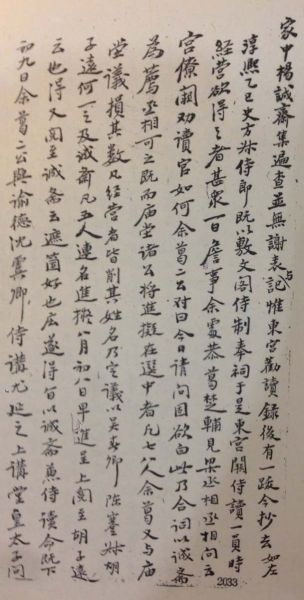 家中楊誠齋集遍查並無謝表與記惟東宮勸讀錄後有一跋今抄去如左
淳熙乙巳史方叔侍郎既以敷文閣待制奉祠于是東宮闕侍讀一員時
經營欲得之者甚眾一日詹事余處恭葛楚輔見梁丞相丞相問云
宮僚闕勸讀官如何余葛二公對曰今日請間固欲白此乃合詞以誠齋
為薦丞相可之既而廟堂諸公將進擬在選中者凡七八人余葛又與廟
堂議損其數凡經營者皆削其姓名乃定議以吳春卿陳蕃叔胡
子遠何一之及誠齋凡五人連名進擬八月初八日早進呈上閱至胡子遠
云也得又閱至誠齋云遮箇好也底遂得旨以誠齋兼侍讀命既下
初九日余葛二公與諭德沈虞卿侍講尤延之上講堂皇太子問
2033